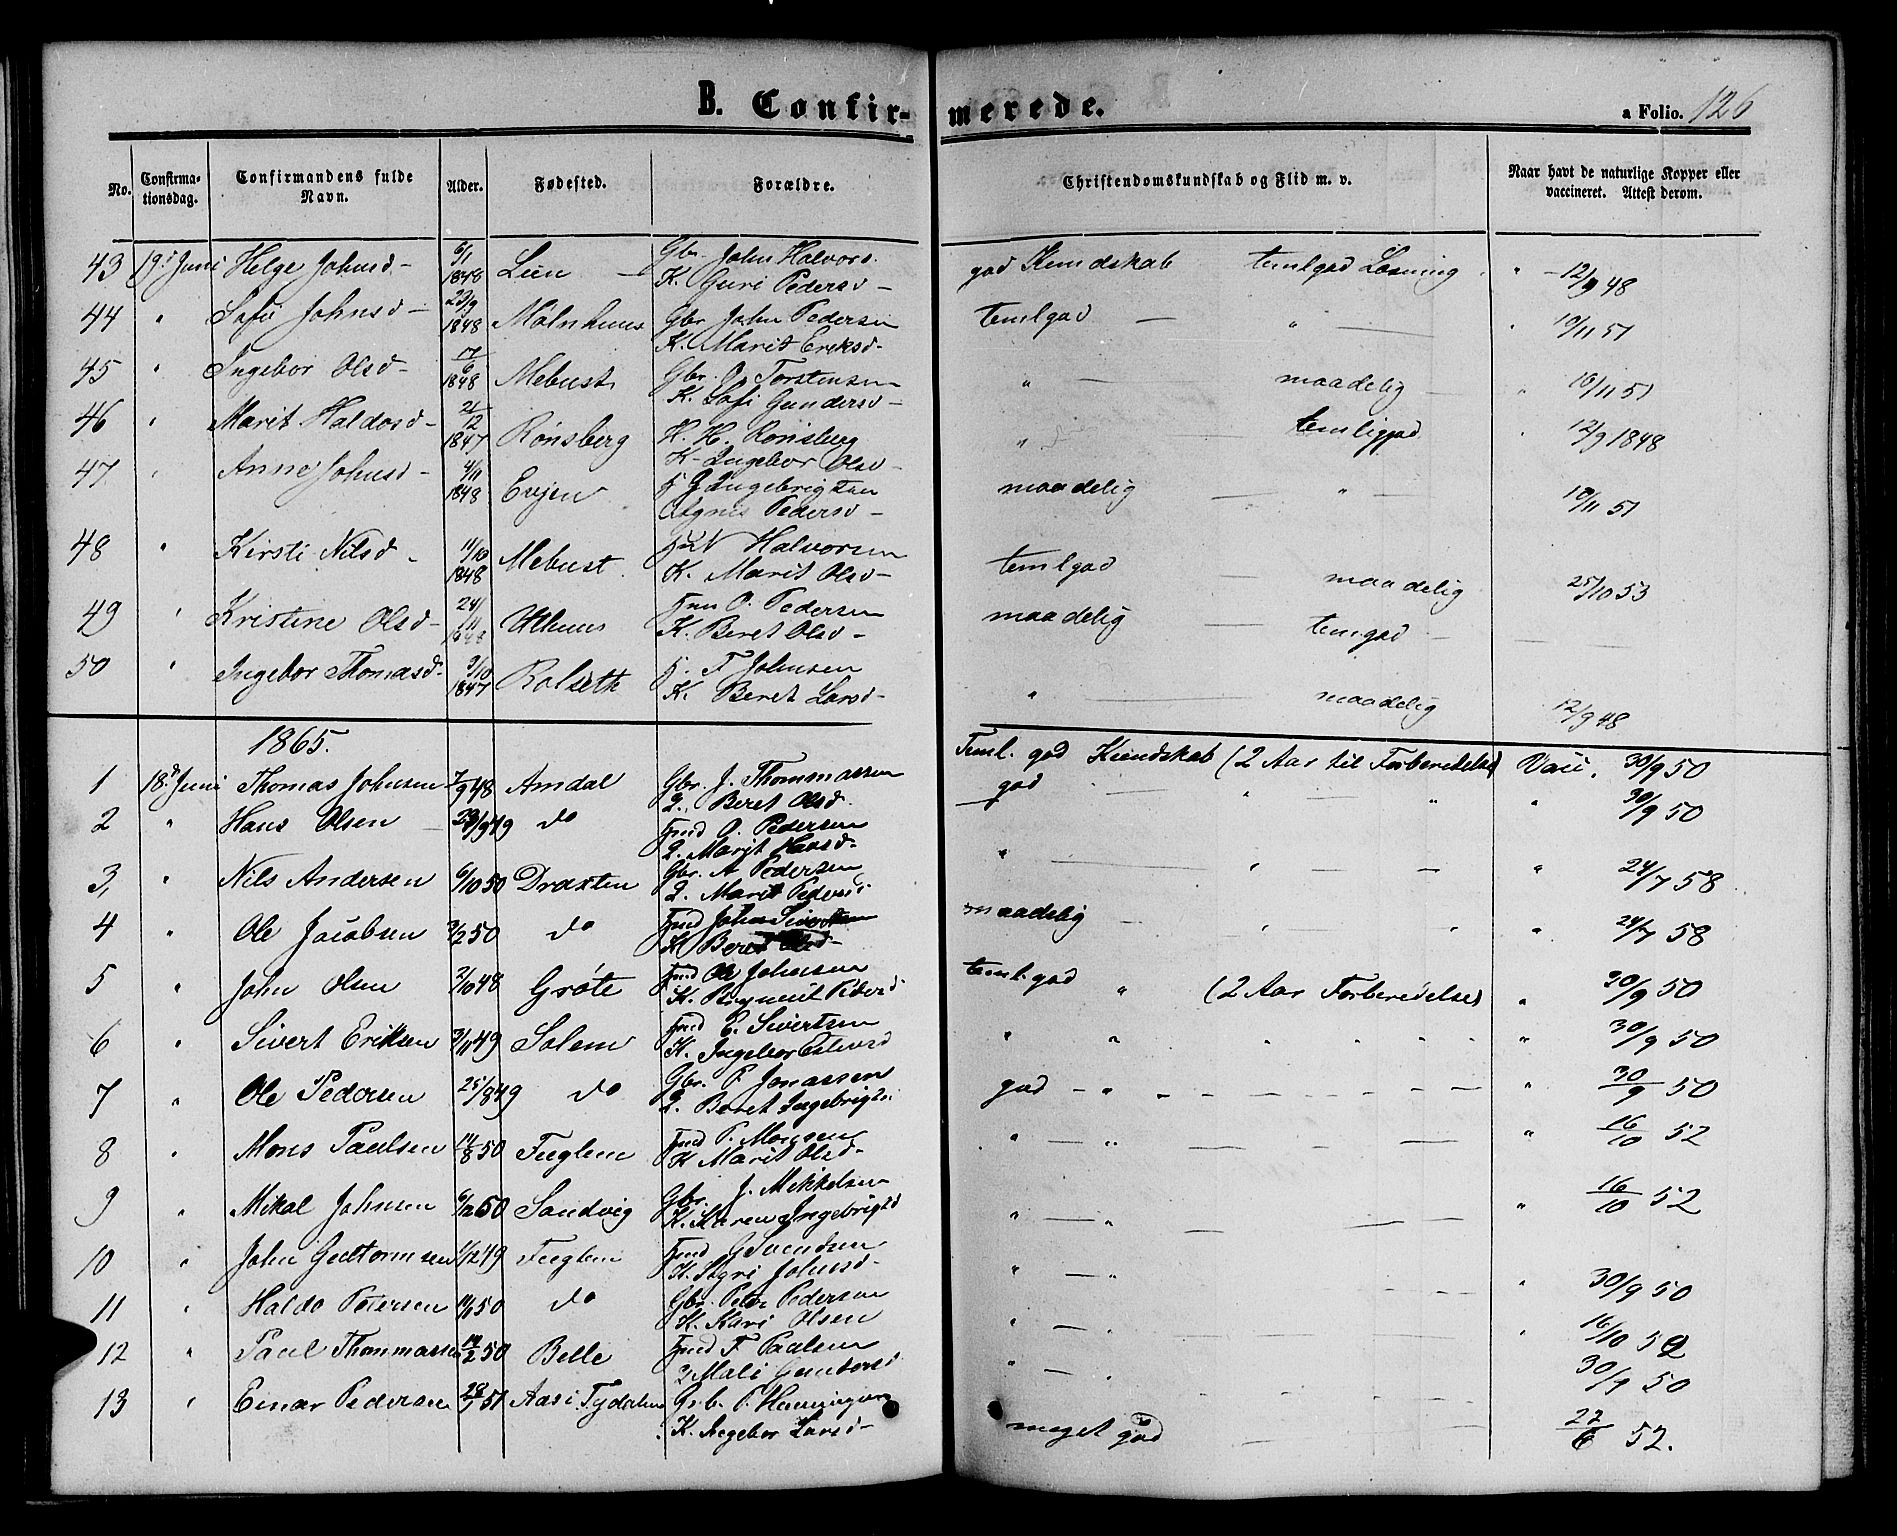 B. Confir- merede. a Folio. 126
No. Confirma- tionsdag. Confirmandens fulde Navn. Alder. Fødested. Forældre. Christendomskundskab og Flid m. v. Naar havt de naturlige Kopper eller vaccineret. Attest derom.
43 19. Juni Helge Johnsd- 6/1 1848 Lien Gbr. John Halvors. god Kundskab temlgod Læsning 12/9 48
K. Guri Pedersd-
44 " Johnsd- 23/9 1848 Mølnhuus Gbr John Pedersen temlgod - " - 19/11 51
K. Marit Eriksd-
45 " Ingebor Olsd- 17/6 1848 Mebust Gbr. O. Torstensen " - maadelig - " 16/11 51
K. Gundersd-
46 " Marit Haldosd- 21/12 1847 Rønsberg H. H. Rønsberg " temliggod 12/9 1848
K. Ingebor Olsd-
47 " Anne Johnsd- 4/11 1848 Evjen J Ingebrigtsen maadelig - " - 19/11 51
Agnis Pedersd-
48 " Kirsti Nilsd- 11/10 1848 Mebust. N Halvorsen temlgod - maadelig 25/10 53
K. Marit Olsd-
49 " Kristine Olsd- 24/11 1848 Uthuus O. Pedersen maadelig - temgod -
K. Beret Olsd-
50 " Ingebor Thomasd- 3/10 1847 Rolseth T Johnsen " - maadelig 12/9 48
K. Beret Larsd-
1865.
1 18. Juni Thomas Johnsen 7/9 48 Amdal Gbr. J. Thommassen Teml. god Kundskab (2 Aar til Forberedelse) Vacc. 30/9 50
Q. Beret Olsd.
2 " Hans Olsen - 23/9 49 do O. Pedersen god - " - " " 30/9 50
Q. Marit Hansd-
3, " Nils Andersen 6/10 50 Draxten Gbr. A Pedersen " - " - " 24/7 58
Q. Marit Pedersd
4 " Ole Jacobsen 3/2 50 do John Sivertsen maadelig - " - " 24/7 58
K Beret Olsd-
5 " John Olsen 2/10 48 Grøte Ole Johnsen teml. god " (2 Aar Forberedelse) " 30/9 50
K. Pedersd
6 " Sivert Eriksen 3/11 49 Solem E. Sivertsen " " " " " 30/9 50
K. Ingebor
7 " Ole Pedersen 25/8 49 do Gbr. P. Jonassen god - " - " 30/9 50
Q. Beret Ingebrigts.
8 " Mons Paulsen 14/8 50 Fuglem P. Monsen " - " - " 16/10 52
K Marit Olsd-
9 " Mikal Johnsen 6/12 50 Sandvig Gbr. J. Mikkelsen " - " - " 16/10 52
K. Karen Ingebrigtsd
10 " John Guttormsen 1/12 49 Fuglem G Svendsen " - " " 30/9 50
K. Sigri Johnsd-
11 " Haldo Petersen 14/1 50 do Gbr. Peter Pedersen " - " " 16/10 52
K. Kari Olsen
12 " Paul Thommassen 14/2 50 Belle T. Paulsen " - 30/9 50
Q Mali Gundersd
13 " Einar Pedersen 28/7 51 Aas i Tydalen Grb. P. Henningsen meget god - 22/6 52.
K. Ingebor Larsd-